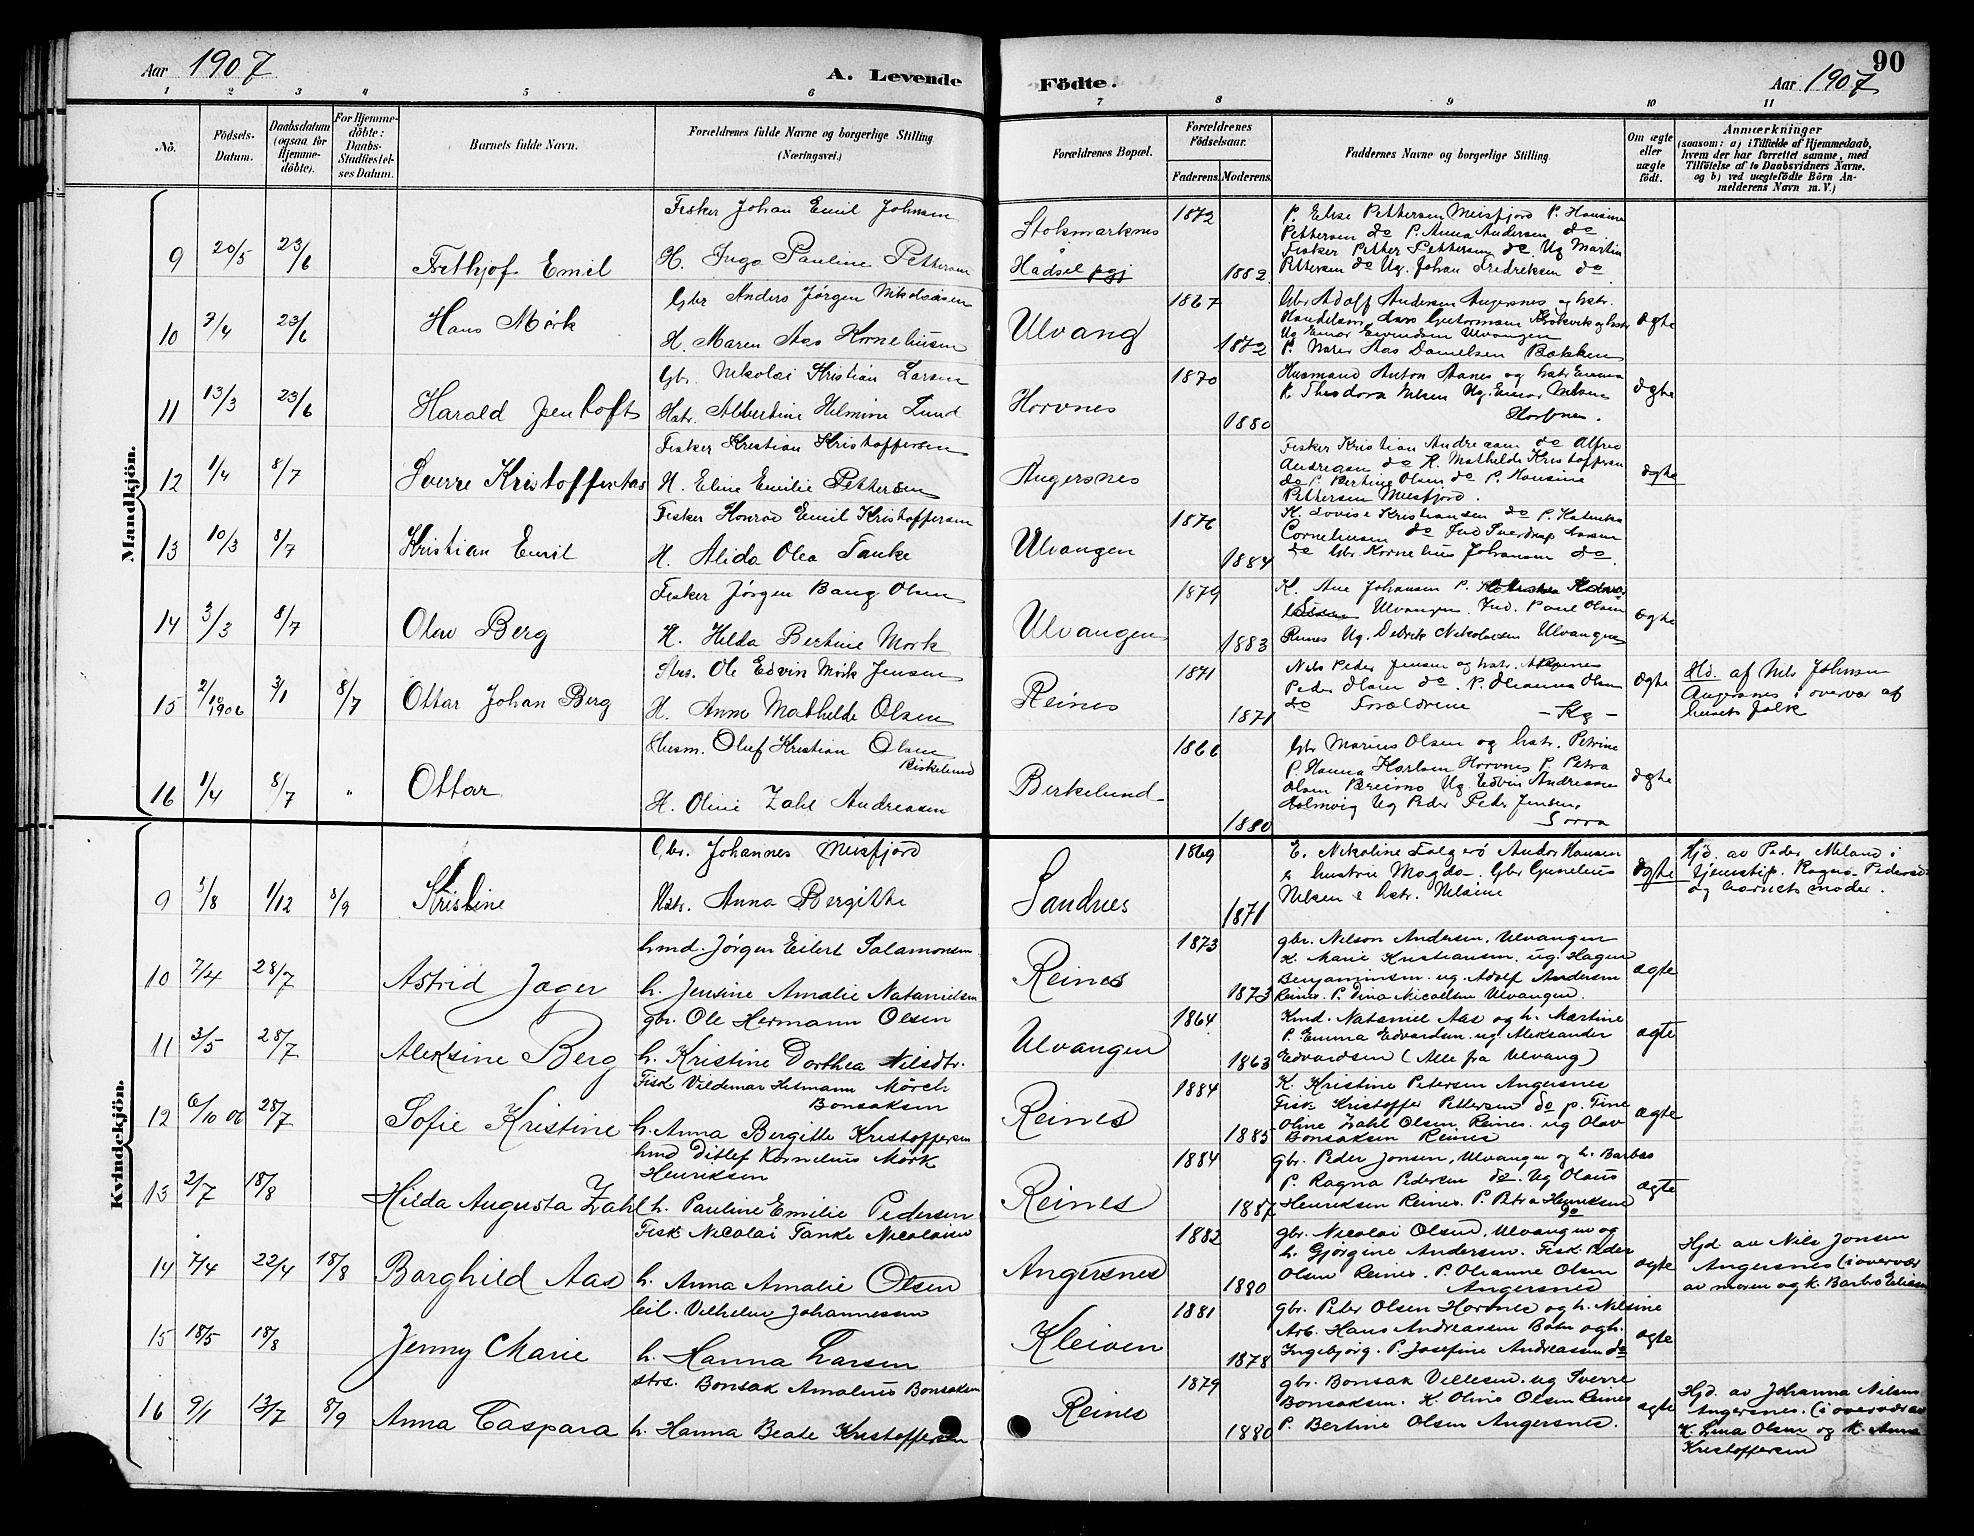 Aar 1907
A. Levende
Födte.
Aar 1907
90
1 2 3 4 5 6 7 8 9 10 11
No.
Födsels-Datum.
Daabsdatum (ogsaa for Hjemme-döbte).
For Hjemme-döbte: Daabs-Stadfæstel-ses Datum.
Barnets fulde Navn.
Forældrenes fulde Navne og borgerlige Stilling (Næringsvei.)
Forældrenes Bopæl.
Forældrenes Födselsaar.
Faderens. Moderens.
Faddernes Navne og borgerlige Stilling.
Om ægte eller uægte födt.
Anmærkninger
(saasom: a) i Tilfælde af Hjemmedaab, hvem der har forrettet samme, med Tilföielse af to Daabsvidners Navne. og b) ved uægtefödte Börn An-melderens Navn m. V.)
Mandkjön.
Fisker Johan Emil Johnsen
9 20/5 23/6 Frethjof Emil H. Inga Pauline Pettersen
Stokmarknes
Hadsel pgj
1872
1882
P. Elise Pettersen Meisfjord P. Hansine
Pettersen do P. Anna Andersen do
Fisker Petter Pettersen do Ug Martin
Pettersen do Ug. Johan Fredreksen do
Gbr Anders Jørgen Nikolaisen
10 7/4 23/6 Hans Mørk H. Maren Aas Korneliusen
Ulvang
1867
1872
ægte
Gbr Adolf Andersen Angersnes og hstr.
P. Maren Aas Danielsen Bakken
Gbr. Nikolai Kristian Larsen
11 13/3 23/6 Harald Jentoft Hstr. Albertine Helmine Lund
Horvnes
1870
1880
ægte
Husmand Anton Aanes og hstr Emma
P. Theodora Nelsen Ug. Einar Nilsen
Horvnes.
Fisker Kristian Kristoffersen
12 1/4 8/7 Sverre Kristoffer Aas H. Eline Emilie Pettersen
Angersnes
ægte
Fisker Kristian Andreasen do Alfred
Andreasen do K. Mathilde Kristoffersen
do P. Bertine Olsen do P. Hansine
Pettersen Meisfjord.
Fisker Konrad Emil Kristoffersen
13 10/3 8/7 Kristian Emil H. Alida Olea Tanke
Ulvangen
1876
1884
K. Lovise Kristiansen do P. Katinka
Corneliusen do Ind Sverdrup Larsen
do Gbr Kornelius Johansen do.
Fisker Jørgen Bang Olsen
14 3/3 8/7 Olav Berg H. Hilda Bertine Mørk
Ulvangen
1879
1883
ægte
K. Ane Johansen P.
Ulvangen. Ind. Paul Olsen
Reines Ug. Didrik Nikolaisen Ulvangen
Strs. Ole Edvin Mørk Jensen
15 2/10 1906 3/1 8/7 Ottar Johan Berg H. Anna Mathilde Olsen
Reines
1871
1871
ægte
Nils Peder Jensen og hstr.
Peder Olsen do. P. Oleanna Olsen
do Forældrene - Kg -
Hd. af Nils Johnsen
Angersnes i overvær af
husets folk
Husm. Oluf Kristian Olsen
Birkelund
16 1/4 8/7 " Ottar H. Oline Zahl Andreasen
Birkelund
1866
1880
ægte
Gbr Marius Olsen og hstr. Petrine
P. Hanna Karlsen Horvnes P. Petra
Olsen Breimo Ug Edvin Andreasen
Holmvig Ug Peder Peder Jensen,
Sørra
Kvindekjön.
Gbr. Johannes Meisfjord
9 5/8 1/12 8/9 Kristine Hstr. Anna Bergitte
Sandnes
1869
1871
ægte
E. Nikoline Falgerø Andor Hansen
& hustru Magda. Gbr Gunelius
Nilsen & hstr. Nilsine
Hjd. av Peder Meland i
Tjenstip. Ragna Pedersen
og barnets moder.
hmd. Jørgen Eilert Salamonsen
10 7/4 28/7 Astrid Jager h. Jensine Amalie Natanielsen
Reines
1873
1873
ægte
gbr. Nilson Andersen, Ulvangen
K. Marie Kristiansen. ug. Hagen
Benjaminsen. ug. Adolf Andersen
Reines. P. Dina Nicolsen Ulvangen.
gbr. Ole Hermann Olsen
11 3/5 28/7 Aleksine Berg h. Kristine Dorthea Nilsdtr.
Ulvangen
1864
1863
ægte
Kmd. Nataniel Aas og h. Martine
P. Emma Edvardsen. ug. Aleksander
Edvardsen (Alle fra Ulvang)
Fisk Valdemar Hermann Mörch
Bonsaksen
12 6/10 06 28/7 Sofie Kristine h. Anna Bergitte Kristoffersen
Reines
1884
1885
ægte
K. Kristine Petersen Angersnes
Fisk Kristoffer Pettersen do p. Tine
Oline Zahl Olsen, Reines. ug Olav
Bonsaksen Reines
hmd Ditlef Kornelius Mörk
Henriksen
13 2/7 18/8 Hilda Augusta Zahl h. Pauline Emilie Pedersen
Reines
1884
1887
ægte
gbr. Peder Jonsen, Ulvangen og h. Barbro
P. Ragna Pedersen do. Ug Olaus
Henriksen Reines. P. Petra Henriksen
do
Fisk Nicolai Tanke Nicolaisen
14 7/4 22/4 18/8 Borghild Aas h. Anna Amalie Olsen
Angersnes
1882
1880
ægte
gbr. Nicolai Olsen, Ulvangen og
h. Gjørgine Andersen. Fisk. Peder
Olsen Reines. P. Oleanne Olsen
Angersnes
Hjd av Nils Jonsen
Angersnes (i overvær
av moren og k. Barbro Eliassen
leil. Vilhelm Johannessen
15 18/5 18/8 Jenny Marie h. Hanna Larsen
Kleiven
1881
1878
ægte
gbr. Peter Olsen Horvnes og h. Nilsine
Arb. Hans Andreassen Botn og h.
Ingebjørg. P. Josefine Andreassen do
strs. Bonsak Amalius Bonsaksen
16 9/1 13/7 8/9 Anna Caspara h. Hanna Beate Kristoffersen
Reines
1879
1880
ægte
gbr. Bonsak Villesen. ug Sverre
Bonsaksen. K. Oline Olsen Reines
P. Bertine Olsen Angersnes.
Hjd. av Johanna Nilsen
Angersnes. (i overvær av
K. Lina Olsen og K. Anna
Kristoffersen